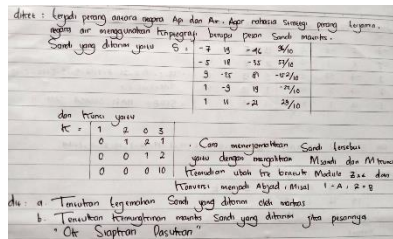 diket : terjadi perang antara negara Api dan Air. Agar rahasia strategi perang terjamin,
negara air menggunakan kriptografi berupa pesan Sandi matriks.
Sandi yang diterima yaitu S : -7 19 -46
-5 18 -35
9 -25 81
1 -9 19
1 11 -21
dan kunci yaitu
K = 1 2 0 3
0 1 2 1
0 0 1 2
0 0 0 10
. Cara menerjemahkan Sandi tersebut
yaitu dengan mengalikan Msandi dan M kunci
Kemudian ubah ke bentuk Modulo dan
Konversi menjadi Abjad, Misal 1 = A, 2 = B
dit : a. Tentukan terjemahan Sandi yang diterima oleh
b. Tentukan kemungkinan matriks Sandi yang diterima jika pesannya
" Ok Siapkan Pasukan "